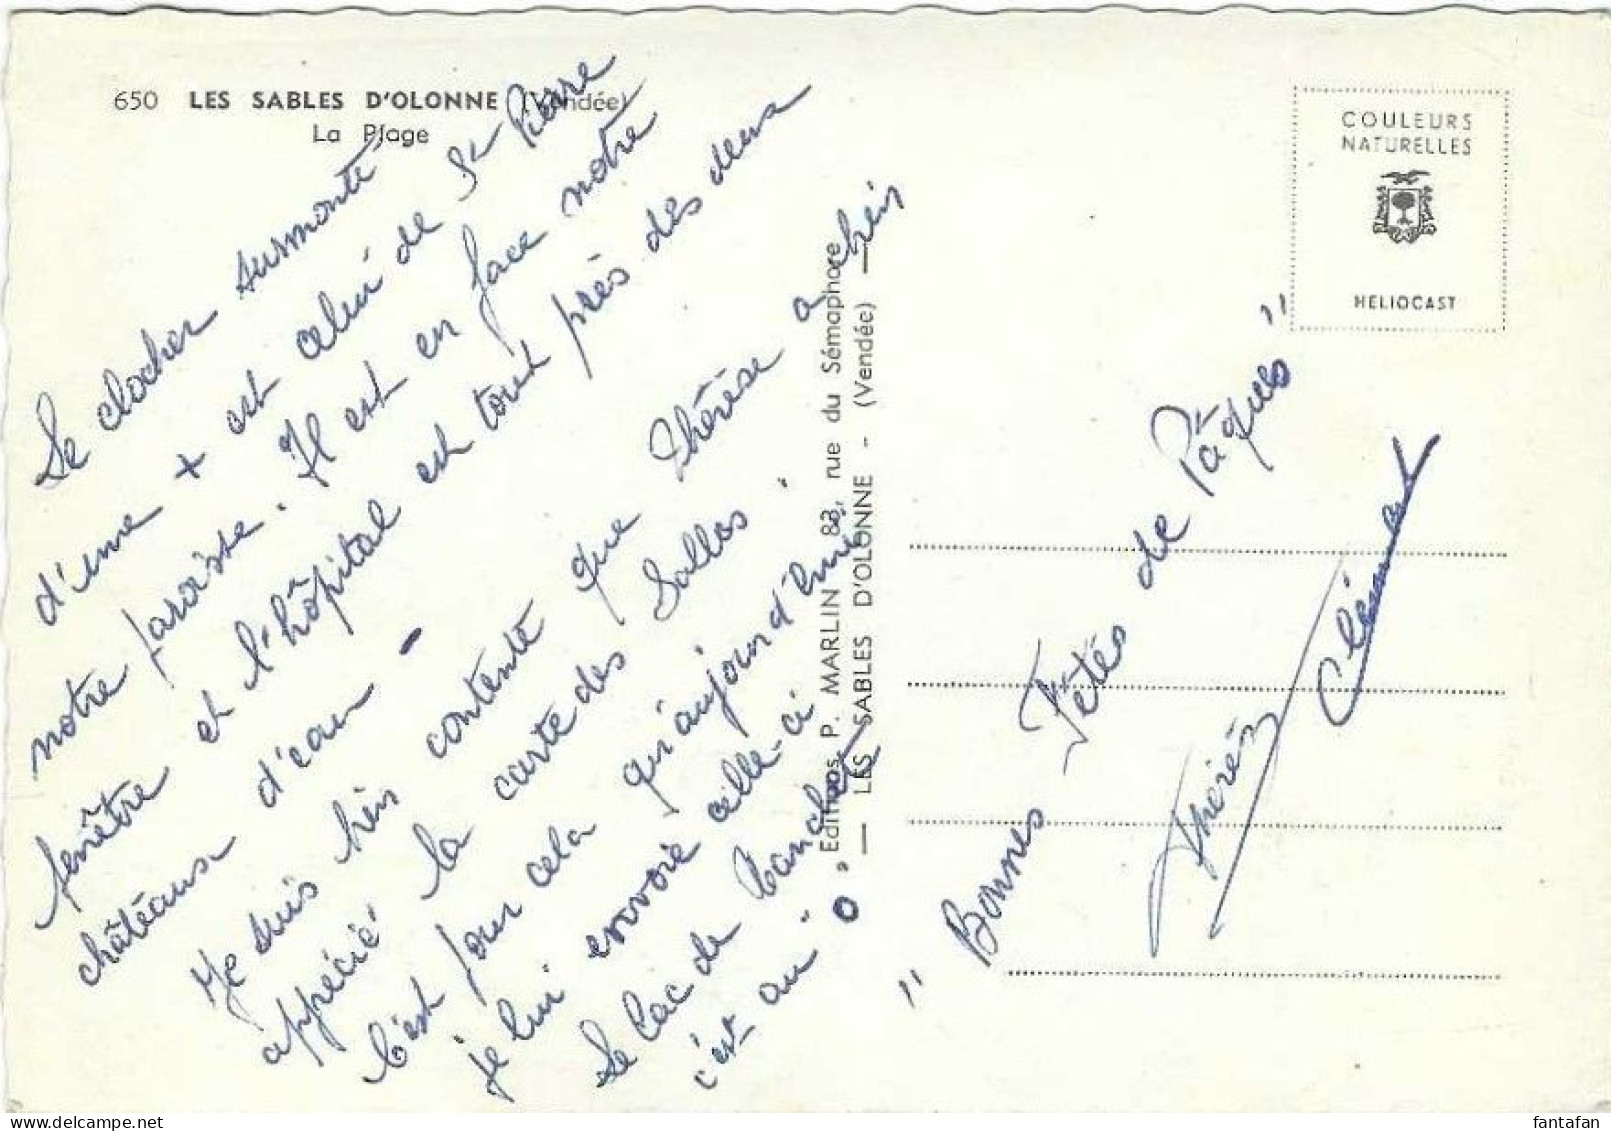 650 LES SABLES D'OLONNE (Vendée)
La Plage
Le clocher surmonté
d'une + est celui de St Pierre
notre paroisse. Il est en face notre
fenêtre et l'hôpital est tout près des deux
châteaux d'eau -
Je suis bien contente que Thérèse a bien
apprécié la carte des Salles.
C'est pour cela qu'aujourd'hui
je lui envoie celle-ci
Le Lac de
c'est au "O"
Editions P. MARLIN 83, rue du Sémaphore
— LES SABLES D'OLONNE - (Vendée) —
COULEURS
NATURELLES
HELIOCAST
"Bonnes Fêtes de Pâques"
Clément
fantafan